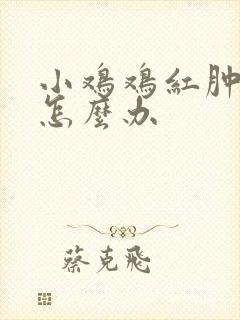 小鸡鸡紅肿
怎麼办
蔡克飛